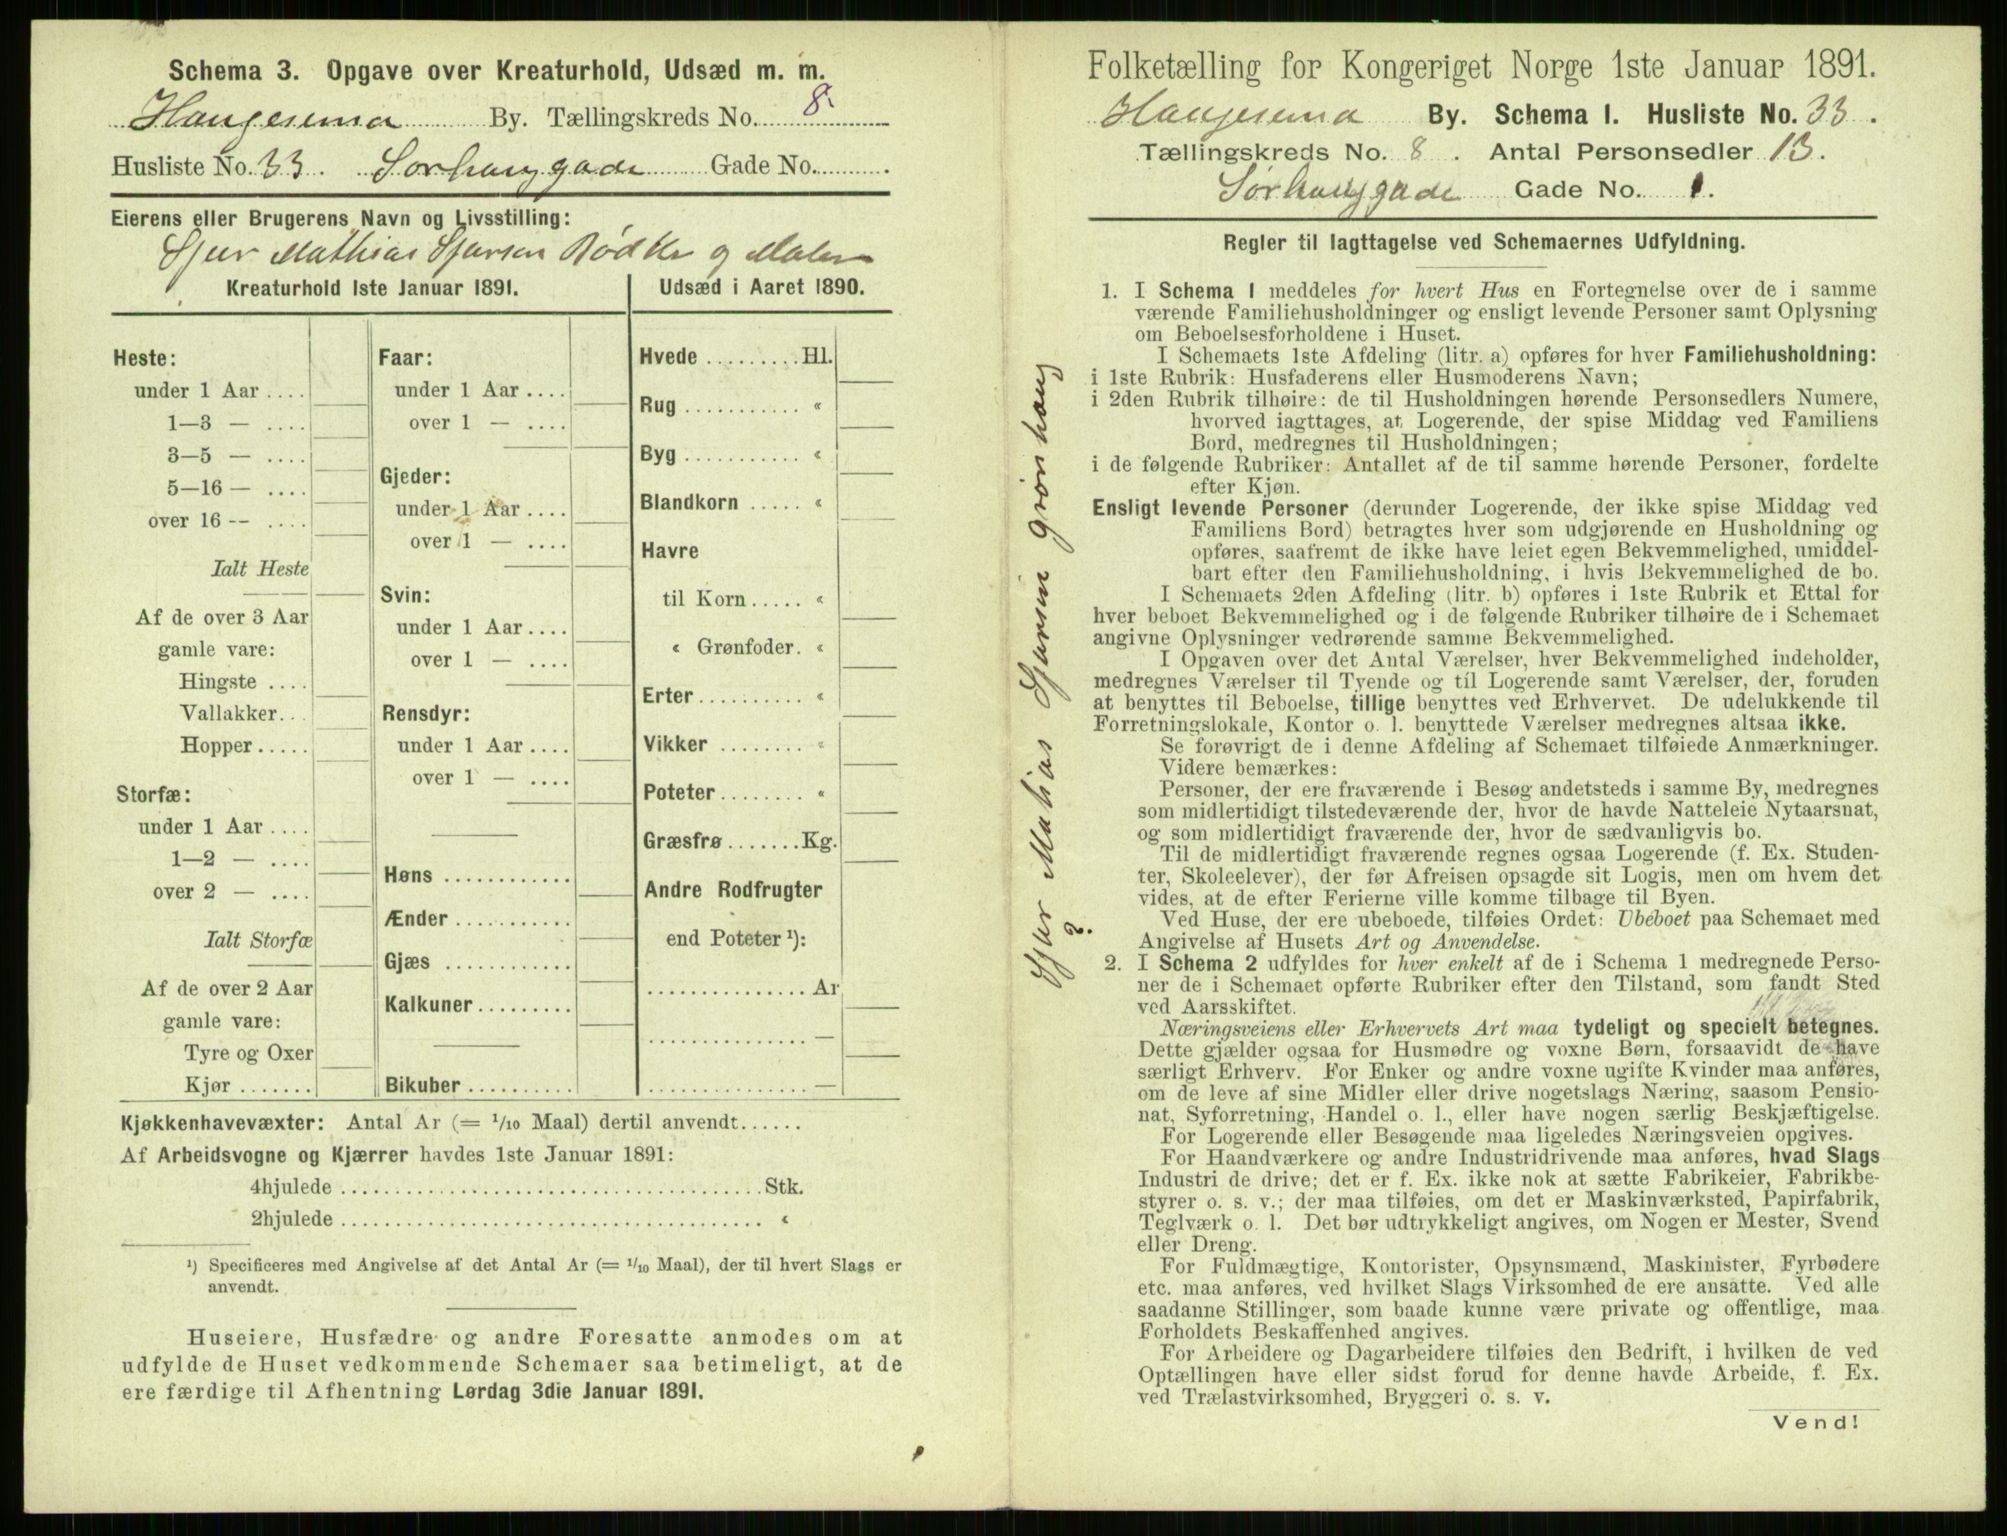 Schema 3. Opgave over Kreaturhold, Udsæd m. m.
Haugesund By. Tællingskreds No. 8.
Husliste No. 33. Sørhauggade Gade No.
Eierens eller Brugerens Navn og Livsstilling:
Sjur Mathias Sjursen Bødker og Maler
Kreaturhold 1ste Januar 1891. Udsæd i Aaret 1890.
Heste:
under 1 Aar ....
1—3 — ....
3—5 — ....
5—16 — ....
over 16 -- ....
Ialt Heste
Af de over 3 Aar
gamle vare:
Hingste ....
Vallakker...
Hopper.....
Storfæ:
under 1 Aar ....
1—2 — ....
over 2 — ....
Ialt Storfæ
Af de over 2 Aar
gamle vare:
Tyre og Oxer
Kjør .......
Faar:
under 1 Aar ....
over 1 — ....
Gjeder:
under 1 Aar ....
over 1 — ....
Svin:
under 1 Aar ....
over 1 — ....
Rensdyr:
under 1 Aar ....
over 1 — ....
Høns ............
Ænder ...........
Gjæs ............
Kalkuner.........
Bikuber ..........
Hvede .........Hl.
Rug ........... «
Byg ........... «
Blandkorn ..... «
Havre
til Korn ..... «
« Grønfoder. «
Erter.......... «
Vikker ........ «
Poteter........ «
Græsfrø .......Kg.
Andre Rodfrugter
end Poteter ¹):
............... Ar
............... —
............... —
Kjøkkenhavevæxter: Antal Ar (= 1/10 Maal) dertil anvendt......
Af Arbeidsvogne og Kjærrer havdes 1ste Januar 1891:
4hjulede ........................................Stk.
2hjulede ........................................ «
¹) Specificeres med Angivelse af det Antal Ar (= 1/10 Maal), der til hvert Slags er
anvendt.
Huseiere, Husfædre og andre Foresatte anmodes om at
udfylde de Huset vedkommende Schemaer saa betimeligt, at de
ere færdige til Afhentning Lørdag 3die Januar 1891.
Sjur Mathias Sjursen Grønhaug
?
Folketælling for Kongeriget Norge 1ste Januar 1891.
Haugesund By. Schema I. Husliste No. 33.
Tællingskreds No. 8. Antal Personsedler 13.
Sørhauggade Gade No. 1.
Regler til Iagttagelse ved Schemaernes Udfyldning.
1. I Schema I meddeles for hvert Hus en Fortegnelse over de i samme
værende Familiehusholdninger og ensligt levende Personer samt Oplysning
om Beboelsesforholdene i Huset.
I Schemaets 1ste Afdeling (litr. a) opføres for hver Familiehusholdning:
i 1ste Rubrik: Husfaderens eller Husmoderens Navn;
i 2den Rubrik tilhøire: de til Husholdningen hørende Personsedlers Numere,
hvorved iagttages, at Logerende, der spise Middag ved Familiens
Bord, medregnes til Husholdningen;
i de følgende Rubriker: Antallet af de til samme hørende Personer, fordelte
efter Kjøn.
Ensligt levende Personer (derunder Logerende, der ikke spise Middag ved
Familiens Bord) betragtes hver som udgjørende en Husholdning og
opføres, saafremt de ikke have leiet egen Bekvemmelighed, umiddel-
bart efter den Familiehusholdning, i hvis Bekvemmelighed de bo.
I Schemaets 2den Afdeling (litr. b) opføres i 1ste Rubrik et Ettal for
hver beboet Bekvemmelighed og i de følgende Rubriker tilhøire de i Schemaet
angivne Oplysninger vedrørende samme Bekvemmelighed.
I Opgaven over det Antal Værelser, hver Bekvemmelighed indeholder,
medregnes Værelser til Tyende og til Logerende samt Værelser, der, foruden
at benyttes til Beboelse, tillige benyttes ved Erhvervet. De udelukkende til
Forretningslokale, Kontor o. l. benyttede Værelser medregnes altsaa ikke.
Se forøvrigt de i denne Afdeling af Schemaet tilføiede Anmærkninger.
Videre bemærkes:
Personer, der ere fraværende i Besøg andetsteds i samme By, medregnes
som midlertidigt tilstedeværende der, hvor de havde Natteleie Nytaarsnat,
og som midlertidigt fraværende der, hvor de sædvanligvis bo.
Til de midlertidigt fraværende regnes ogsaa Logerende (f. Ex. Studen-
ter, Skoleelever), der før Afreisen opsagde sit Logis, men om hvem det
vides, at de efter Ferierne ville komme tilbage til Byen.
Ved Huse, der ere ubeboede, tilføies Ordet: Ubeboet paa Schemaet med
Angivelse af Husets Art og Anvendelse.
2. I Schema 2 udfyldes for hver enkelt af de i Schema 1 medregnede Perso-
ner de i Schemaet opførte Rubriker efter den Tilstand, som fandt Sted
ved Aarsskiftet.
Næringsveiens eller Erhvervets Art maa tydeligt og specielt betegnes.
Dette gjælder ogsaa for Husmødre og voxne Børn, forsaavidt de have
særligt Erhverv. For Enker og andre voxne ugifte Kvinder maa anføres,
om de leve af sine Midler eller drive nogetslags Næring, saasom Pensio-
nat, Syforretning, Handel o. l., eller have nogen særlig Beskjæftigelse.
For Logerende eller Besøgende maa ligeledes Næringsveien opgives.
For Haandværkere og andre Industridrivende maa anføres, hvad Slags
Industri de drive; det er f. Ex. ikke nok at sætte Fabrikeier, Fabrikbe-
styrer o. s. v.; der maa tilføies, om det er Maskinværksted, Papirfabrik,
Teglværk o. l. Det bør udtrykkeligt angives, om Nogen er Mester, Svend
eller Dreng.
For Fuldmægtige, Kontorister, Opsynsmænd, Maskinister, Fyrbødere
etc. maa anføres, ved hvilket Slags Virksomhed de ere ansatte. Ved alle
saadanne Stillinger, som baade kunne være private og offentlige, maa
Forholdets Beskaffenhed angives.
For Arbeidere og Dagarbeidere tilføies den Bedrift, i hvilken de ved
Optællingen have eller sidst forud for denne havde Arbeide, f. Ex.
ved Trælastvirksomhed, Bryggeri o. s. v.
Vend!